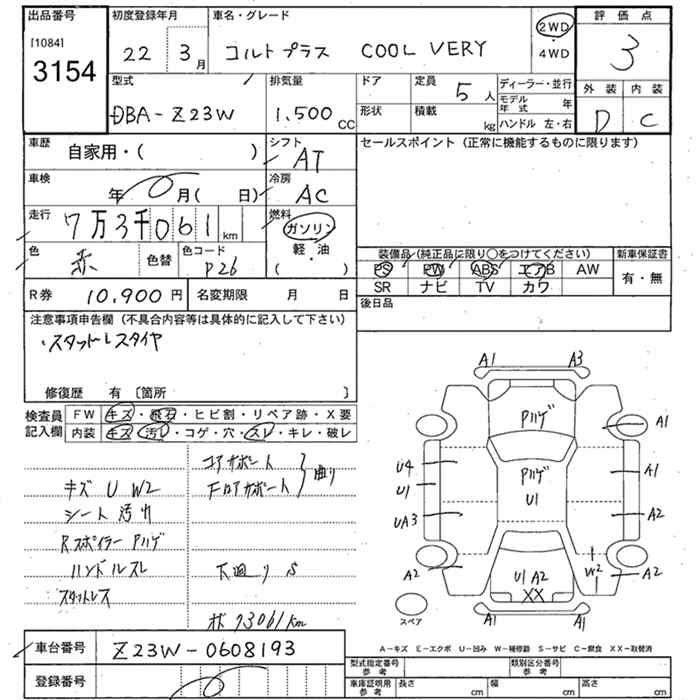 出品番号 初度登録年月 車名・グレード 評価点
[1084]
3154
22 3月 コルトプラス COOL VERY 2WD 3
・4WD
型式 排気量 ドア 定員 5人 ディーラー・並行 外装 内装
モデル年式 年
DBA-Z23W 1.500cc 形状 積載 kg ハンドル 左・右 D C
車歴 自家用・( ) シフト AT セールスポイント(正常に機能するものに限ります)
車検 年 月( 日) 冷房 AC
走行 7万3千061km 燃料 ガソリン
軽・油
( )
色 赤 色替 色コード P26
装備品(純正品に限り○をつけてください) 新車保証書
PS PW ABS エアB AW 有・無
SR ナビ TV カワ
R券 10,900円 名変期限 月 日 後日品
注意事項申告欄(不具合内容等は具体的に記入して下さい)
・スタットレスタイヤ
修復歴 有〔箇所 〕
検査員 FW キズ・飛石・ヒビ割・リペア跡・X要
記入欄 内装 キズ・汚レ・コゲ・穴・スレ・キレ・破レ
コアサポート
フロアサポート 曲り
キズ U W2
シート汚れ
Rスポイラー Pハゲ
ハンドルスレ
下廻り S
スタットレス
メ 73061km
A1 A3
Pハゲ
A1
U4
U1
Pハゲ
U1
A1
UA3
A2
A2
U1 A2
XX
W2
A2
スペア
A1 A1
A-キズ E-エクボ U-凹み W-補修跡 S-サビ C-腐食 XX-取替済
車台番号 Z23W-0608193
登録番号
型式指定番号 参考 類別区分番号 参考
車庫証明用 参考 長さ cm 幅 cm 高さ cm